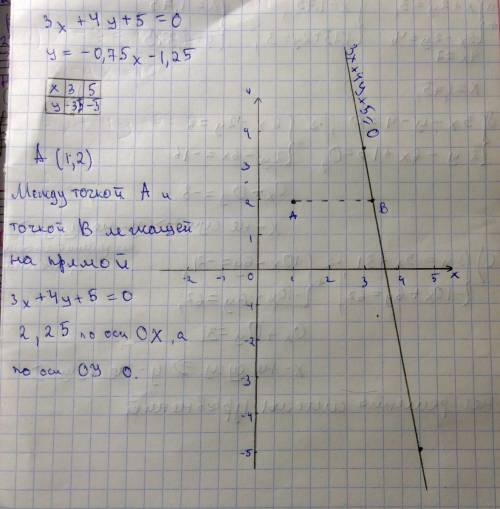 3x + 4y + 5 = 0
y = -0,75x - 1,25
x 3 5
y -3,5 -5
A (1,2)
Между точкой А и
точкой В лежащей
на прямой
3x + 4y + 5 = 0
2,25 по оси ОХ, а
по оси ОУ 0.
y
4
3
2
1
0
-2 -1 0 1 2 3 4 5 x
-1
-2
-3
-4
-5
A
B